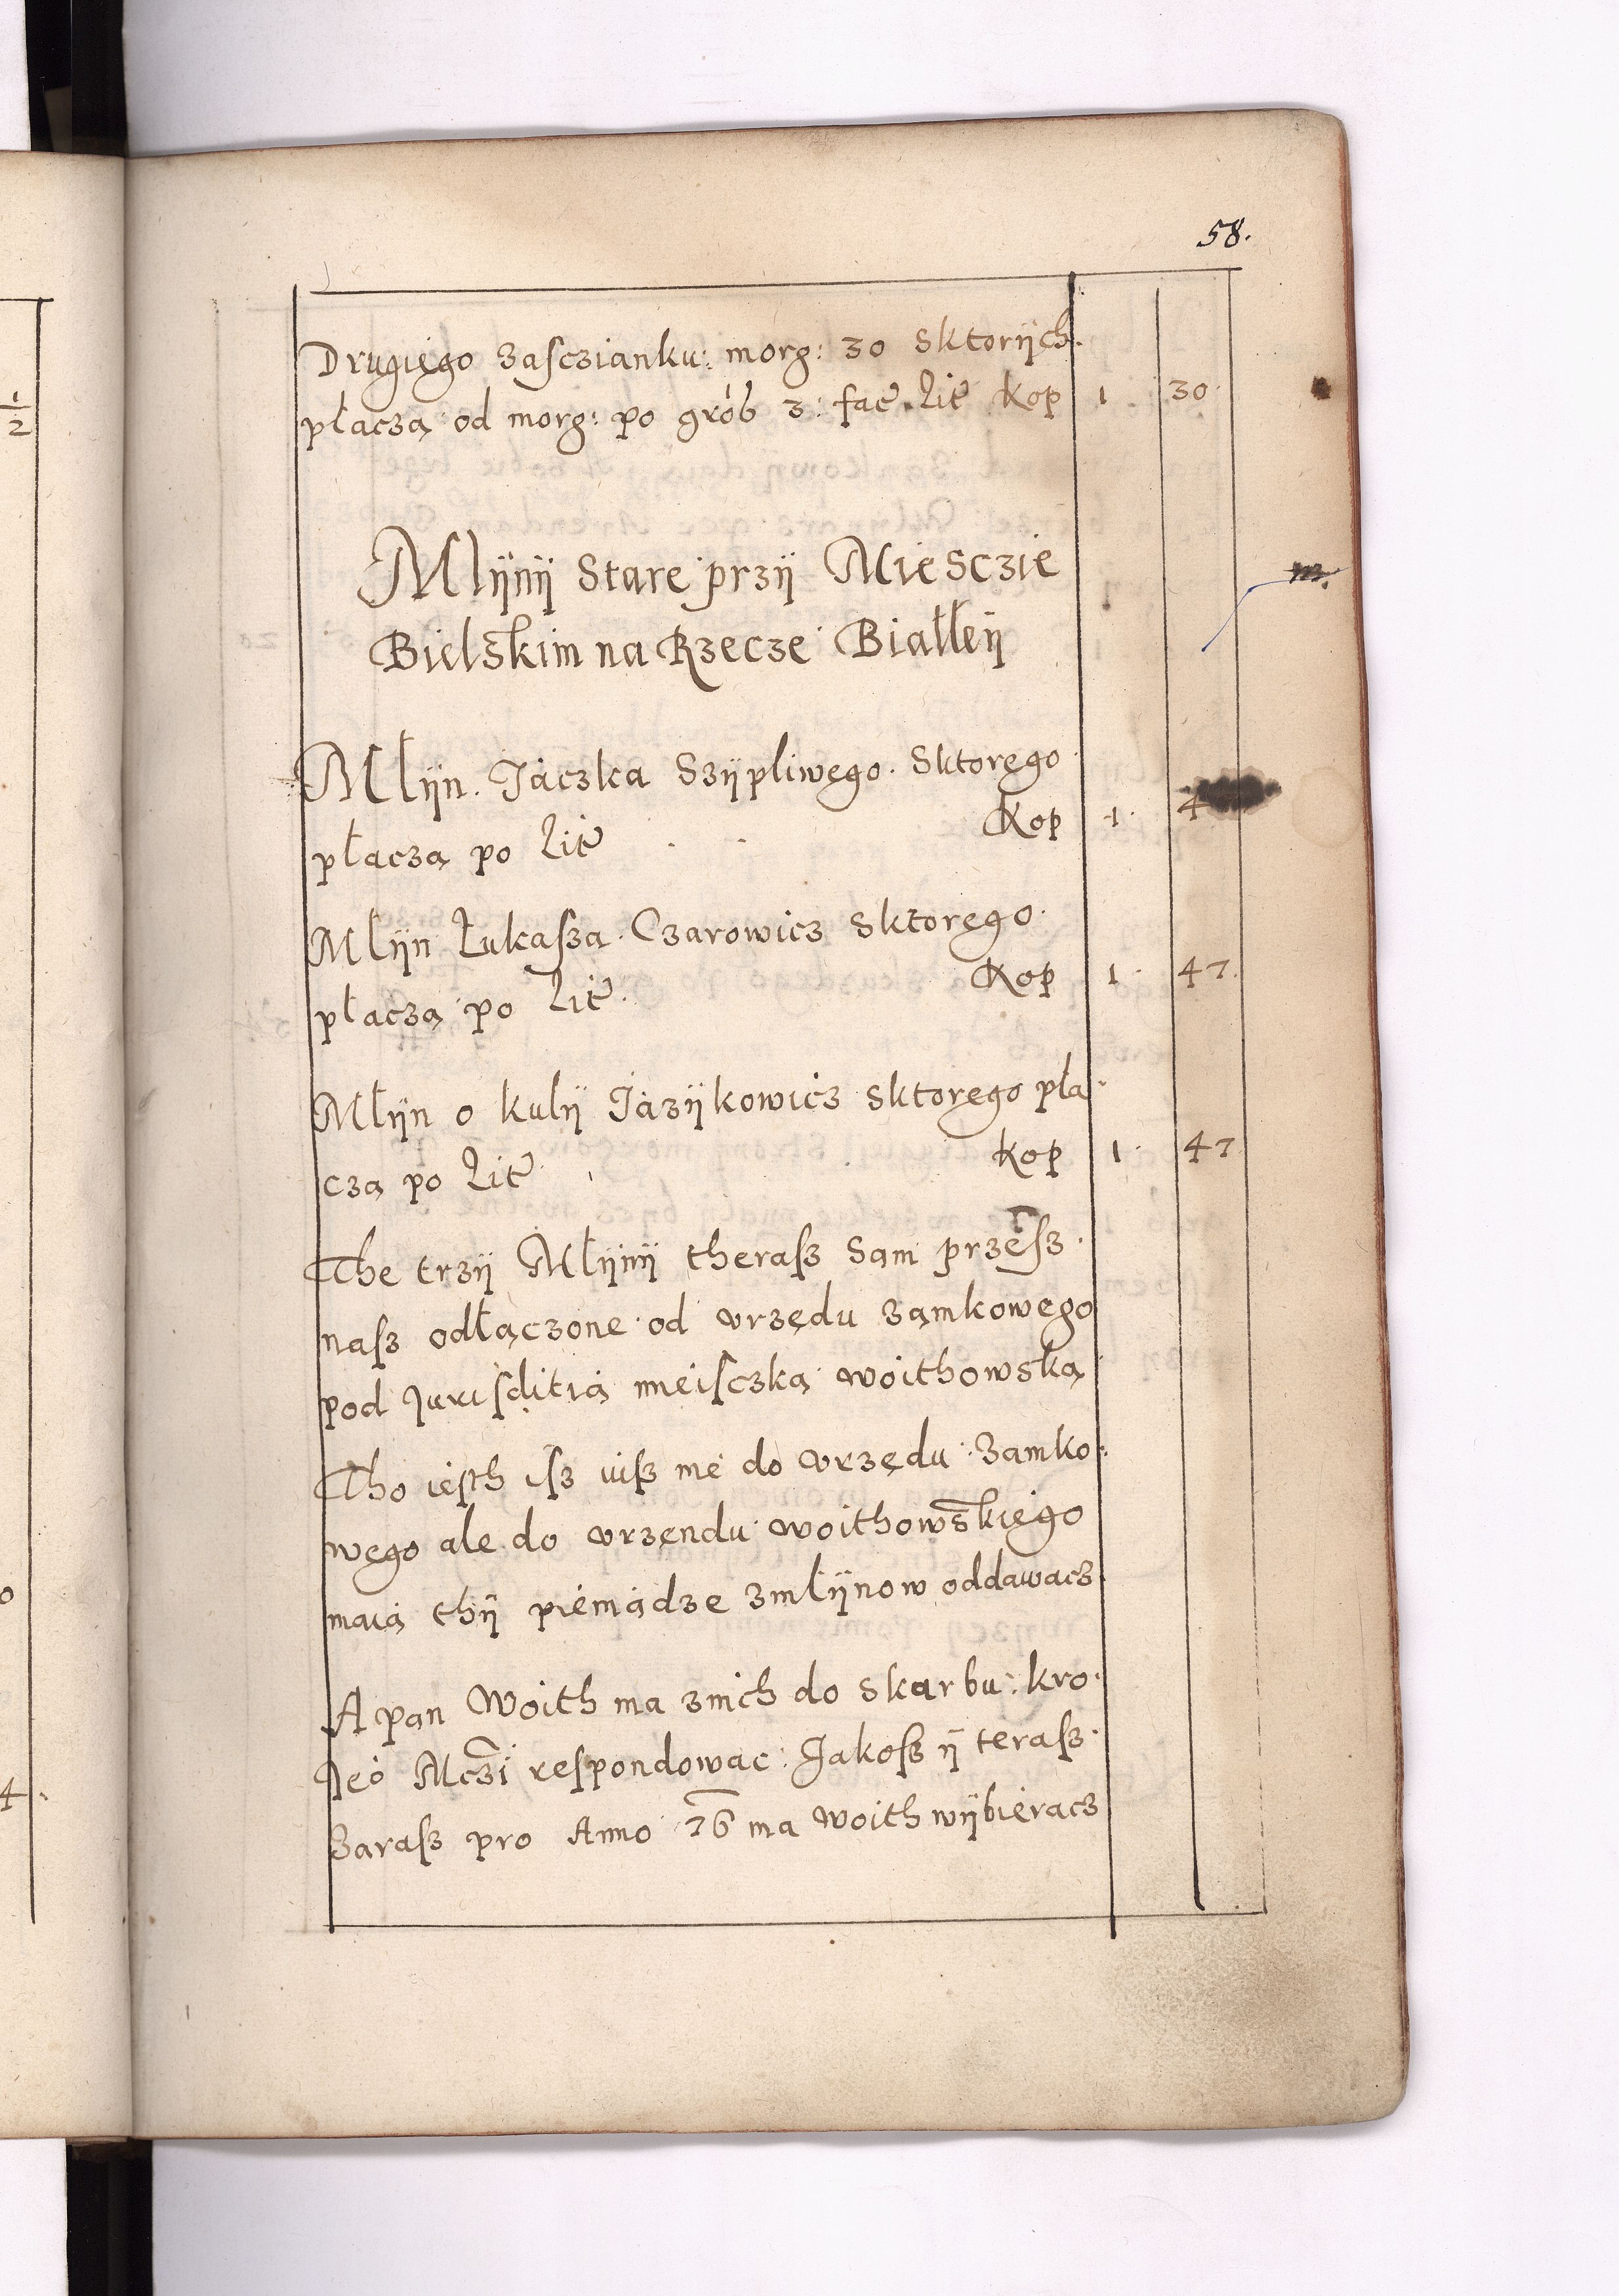 58.
Drugiego zasczianku: morg: 30 sktorÿch
płaczą od morg: po grob 3: fac Lit Kop 1 30
Mlÿnÿ Stare przÿ Miesczie
Bielskim na Rzecze Białłeÿ
Młÿn Jaczka Szÿpliwego Sktorego
płaczą po Lit Kop 1 4
Młÿn Łukasza Czarowicz sktorego
płaczą po Lit Kop 1 47
Młÿn o kulÿ Jazÿkowicz sktorego pła
czą po Lit Kop 1 47
The trzÿ Młÿnÿ therasz Sam przesz
nasz odłączone od vrzędu zamkowego
pod Jurisditią mieisczką woithowską
Tho iesth isz iusz nie do vrzędu zamko
wego ale do vrzendu woithowskiego
maią thÿ pieniądze zmlÿnow oddawacz
A pan Woith ma znich do skarbu kro
Jeo Mczi respondowac Jakosz ÿ terasz
Zarasz pro Anno 76 ma woith wÿbieracz
1/2
o
4